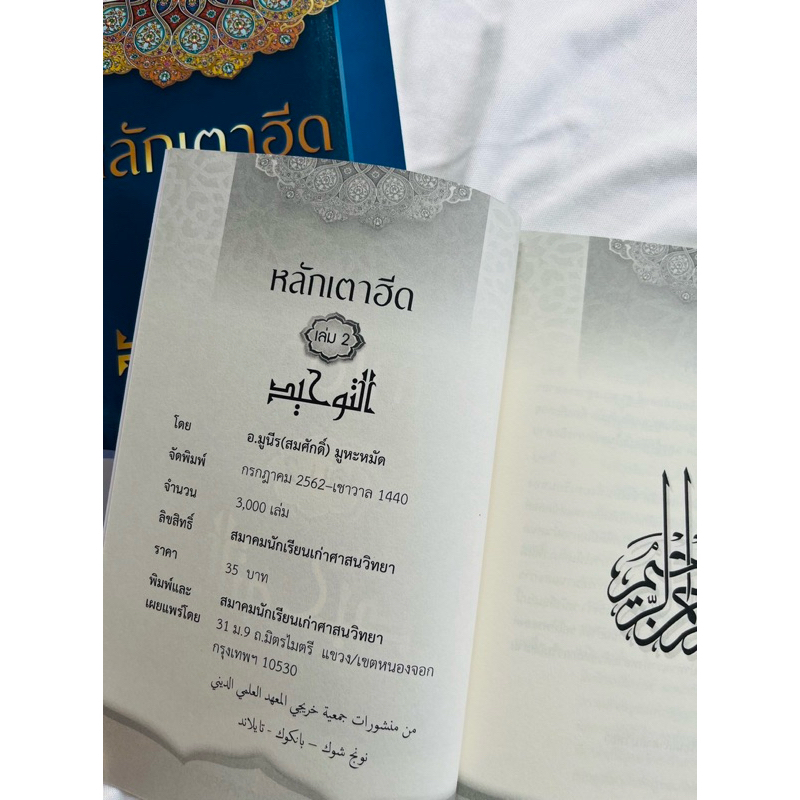 หลักเตาฮีด
หลักเตาฮีด
เล่ม 2
التوحيد
โดย อ.มูนีร(สมศักดิ์) มูหะหมัด
จัดพิมพ์ กรกฎาคม 2562–เชาวาล 1440
จำนวน 3,000 เล่ม
ลิขสิทธิ์ สมาคมนักเรียนเก่าศาสนวิทยา
ราคา 35 บาท
พิมพ์และ สมาคมนักเรียนเก่าศาสนวิทยา
เผยแพร่โดย 31 ม.9 ถ.มิตรไมตรี แขวง/เขตหนองจอก
กรุงเทพฯ 10530
من منشورات جمعية خريجي المعهد العلمي الديني
نونج شوك – بانكوك - تايلاند